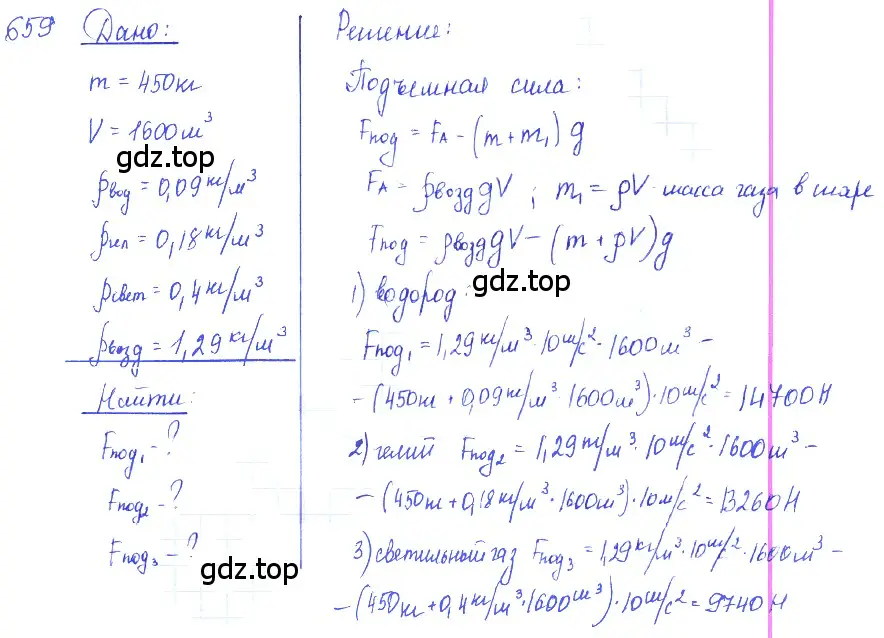 659 Дано:
m = 450кг
V = 1600м³
gdz.top
ρвод = 0,09 кг/м³
ρгел = 0,18 кг/м³
ρсвет = 0,4 кг/м³
ρвозд = 1,29 кг/м³
Найти:
Fпод₁ - ?
Fпод₂ - ?
Fпод₃ - ?
gdz.top
Решение:
Подъемная сила:
Fпод = FА - (m + m₁) g
FА = ρвозд gV ; m₁ = ρV - масса газа в шаре
Fпод = ρвозд gV - (m + ρV)g
gdz.top
1) водород:
Fпод₁ = 1,29 кг/м³ · 10 м/с² · 1600м³ -
- (450кг + 0,09 кг/м³ · 1600м³) · 10 м/с² = 14700Н
2) гелий Fпод₂ = 1,29 кг/м³ · 10 м/с² · 1600м³ -
- (450кг + 0,18 кг/м³ · 1600м³) · 10 м/с² = 13260Н
3) светильный газ Fпод₃ = 1,29 кг/м³ · 10 м/с² · 1600м³ -
- (450кг + 0,4 кг/м³ · 1600м³) · 10 м/с² = 9740Н